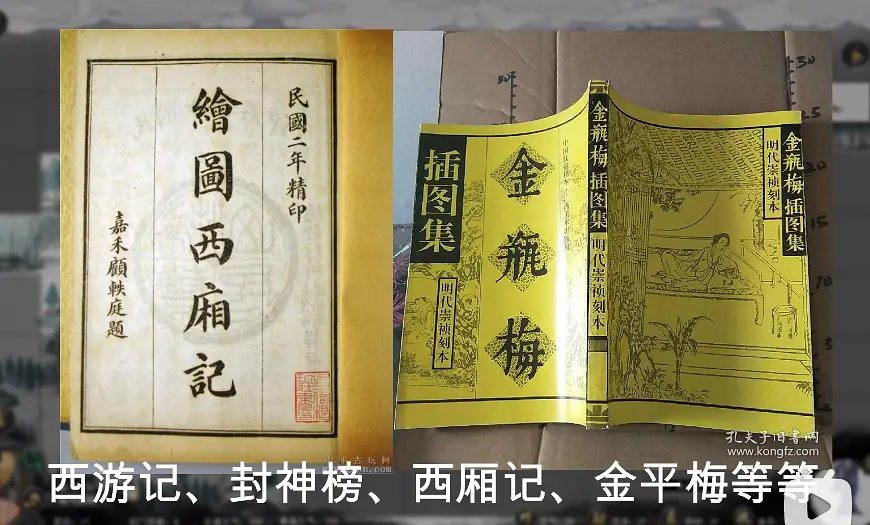 民國二年精印
繪圖西廂記
嘉禾顧軼庭題
插图集
明代崇祯刻本
金瓶梅
金瓶梅插图集
明代崇祯刻本
金瓶梅插图集
明代崇祯刻本
30
25
20
15
10
孔夫子旧书网
www.kongfz.com
西游记、封神榜、西厢记、金平梅等等